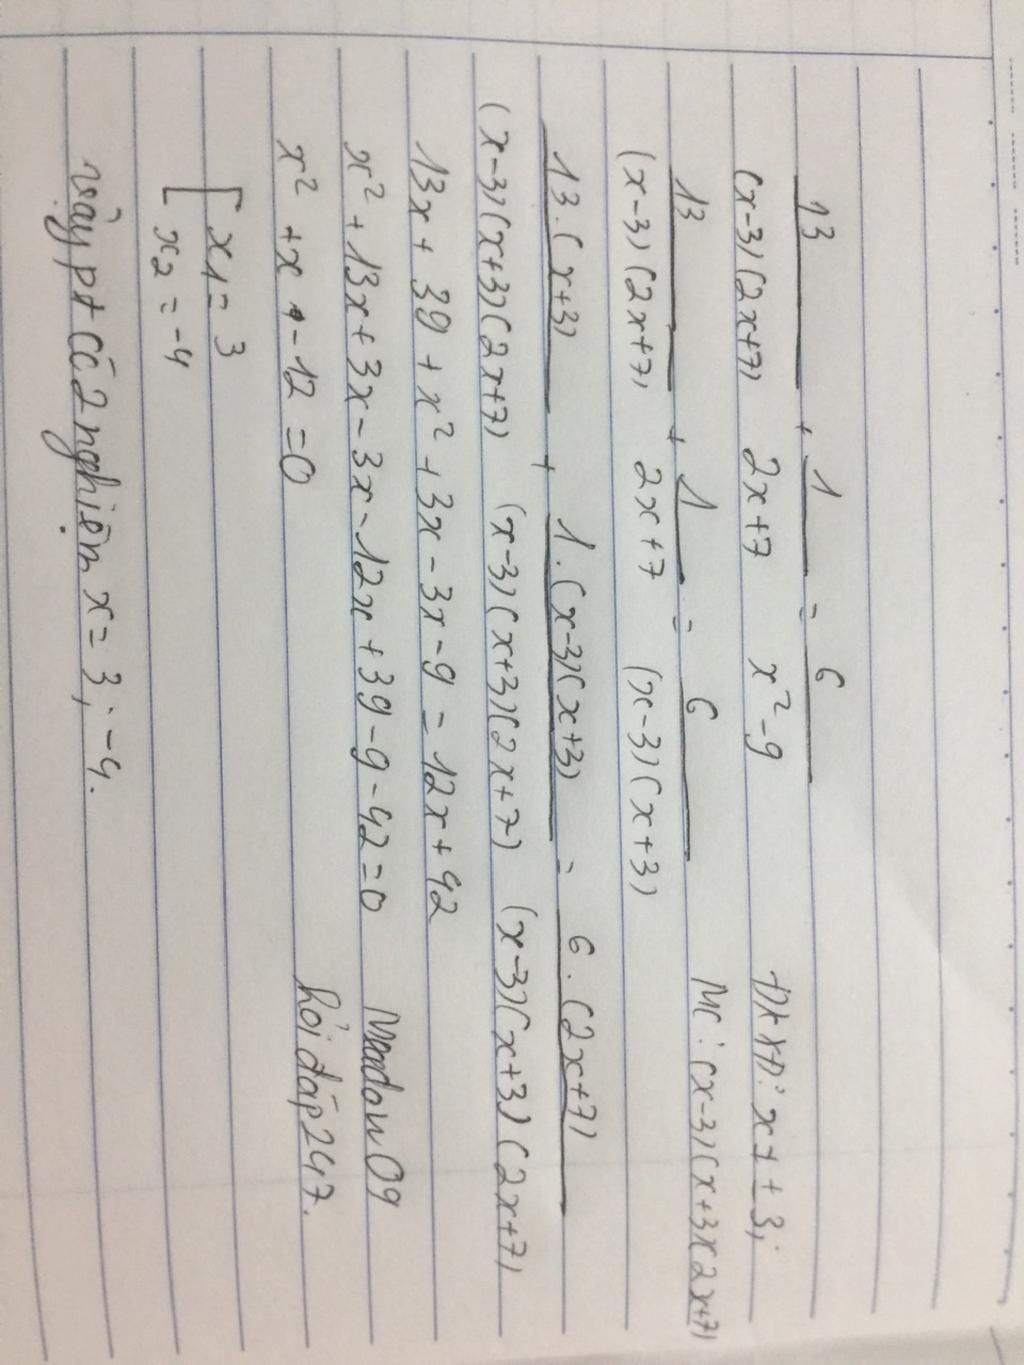 13/((x-3)(2x+7)) + 1/(2x+7) = 6/(x²-9) ĐKXĐ: x ≠ ±3;
13/((x-3)(2x+7)) + 1/(2x+7) = 6/((x-3)(x+3)) MC: (x-3)(x+3)(2x+7)
13.(x+3)/((x-3)(x+3)(2x+7)) + 1.(x-3)(x+3)/((x-3)(x+3)(2x+7)) = 6.(2x+7)/((x-3)(x+3)(2x+7))
13x + 39 + x² + 3x - 3x - 9 = 12x + 42
x² + 13x + 3x - 3x - 12x + 39 - 9 - 42 = 0
x² + x - 12 = 0 hỏi đáp 247.
[ x1 = 3
x2 = -4
vậy pt có 2 nghiệm x = 3; -4.